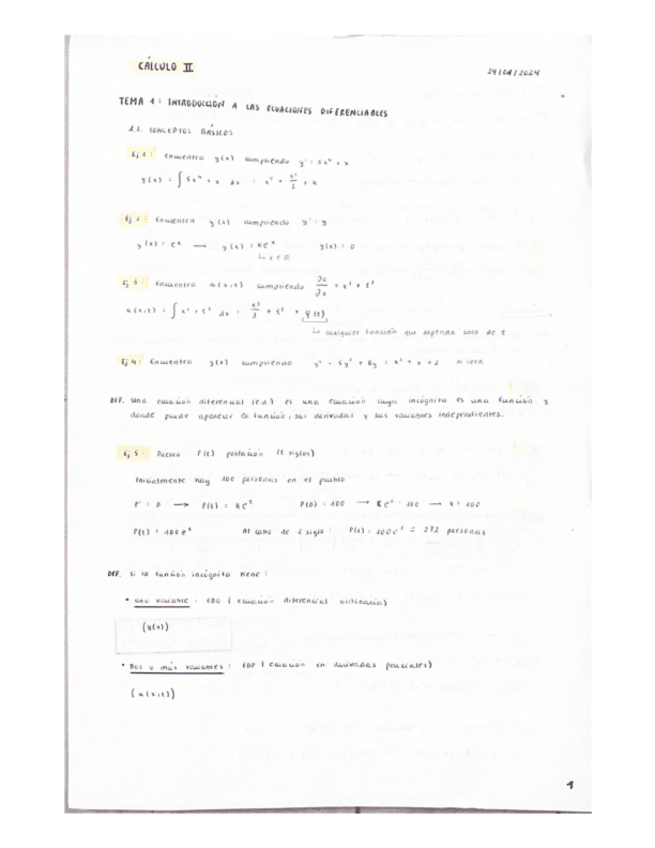 CÁLCULO II
TEMA 1: INTRODUCCIÓN A LAS ECUACIONES DIFERENCIABLES
1.1. CONCEPTOS BÁSICOS
Ej 1: Encuentra y(x) cumpliendo y' = 5x⁴ + x
y(x) = ∫ 5x⁴ + x dx = x⁵ + x²/2 + K
Ej 2: Encuentra y(x) cumpliendo y' = y
y(x) = eˣ → y(x) = Keˣ y(x) = 0
Ej 3: Encuentra u(x,t) cumpliendo ∂u/∂x = x² + t²
u(x,t) = ∫ x² + t² dx = x³/3 +
↳ cualquier función que dependa solo de t
Ej 4: Encuentra y(x) cumpliendo y'' - 5y' + 6y = x² + x + 2
DEF. Una ecuación diferencial (e.d.) es una ecuación cuya incógnita es una función y
donde puede aparecer la función, sus derivadas y sus variables independientes.
Ej 5: Pueblo P(t) población (t siglos)
Inicialmente hay 100 personas en el pueblo
→ P(t) = Keᵗ P(0) = 100 → Ke⁰ = 100 → K = 100
P(t) = 100eᵗ Al cabo de 1 siglo: P(1) = 100e¹ = 272 personas
DEF. Si la función incógnita tiene:
• una variable: EDO (ecuación diferencial ordinaria)
(y(x))
• Dos o más variables: EDP (ecuación en derivadas parciales)
(u(x,t))
1